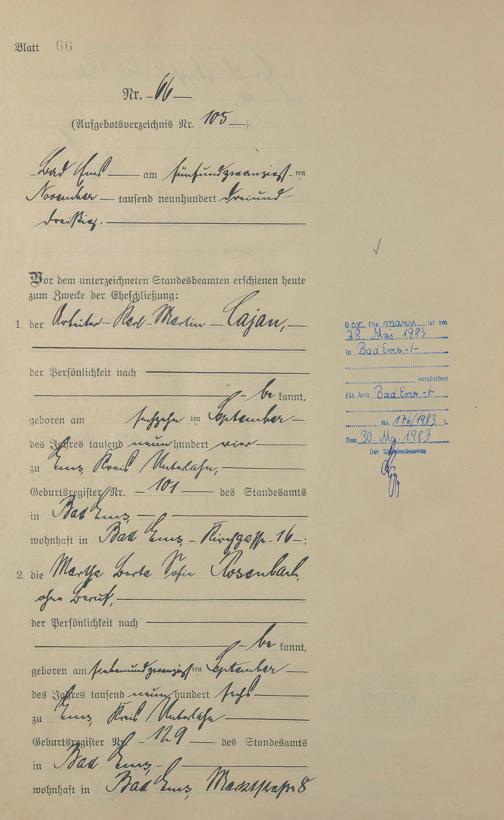 Blatt 66
Nr. 66
(Aufgebotsverzeichnis Nr. 105)
Bad Ems am fünfundzwanzigsten
November tausend neunhundert dreiund
dreißig.
Vor dem unterzeichneten Standesbeamten erschienen heute
zum Zwecke der Eheschließung:
1. der Arbeiter Karl Martin Cajan,
der Persönlichkeit nach
bekannt,
geboren am sechzehn ten September
des Jahres tausend neunhundert vier
zu Ems Kreis Unterlahn,
Geburtsregister Nr. 101 des Standesamts
in Bad Ems,
wohnhaft in Bad Ems - Kirchgasse 16;
2. die Martha Berta Sofie Rosenbach,
ohne Beruf,
der Persönlichkeit nach
bekannt,
geboren am siebenundzwanzigsten September
des Jahres tausend neunhundert sechs
zu Ems Kreis Unterlahn
Geburtsregister Nr. 129 des Standesamts
in Bad Ems,
wohnhaft in Bad Ems, Marktstraße 8
Der Ehemann ist am
28. Mai 1983
in Bad Ems -/-
verstorben
(St. Amt Bad Ems -/-
Nr. 176/1983 ).
Den 30. Mai 1983
Der Standesbeamte